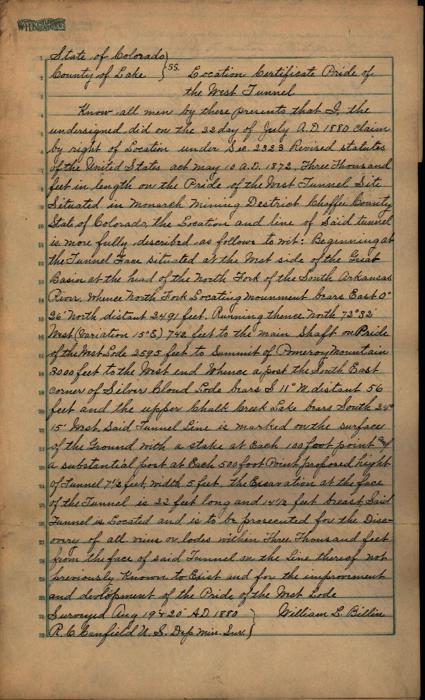 State of Colorado }
County of Lake } SS. Location Certificate Pride of
the West Tunnel
Know all men by these presents that I, the
undersigned did on the 22 day of July A.D. 1880 claim
by right of Location under Sec. 2323 Revised statutes
of the United States act may 10 A.D. 1872, Three Thousand
feet in length on the Pride of the West Tunnel Site
Situated in Monarch Mining District Chaffee County
State of Colorado, the Location and line of Said tunnel
is more fully described as follows to wit: Beginning at
the Tunnel Face situated at the West side of the Great
Basin at the head of the North Fork of the South Arkansas
River, Whence North Fork Locating Monument bears East 0°
26' North, distant 2491 feet. Running thence North 72°32'
West (Variation 15° E) 742 feet to the main Shaft on Pride
of the West Lode 2595 feet to Summit of Pomeroy Mountain
3000 feet to the West end Whence a post the South East
corner of Silver Cloud Lode bears S 11° W distant 56
feet and the upper Chalk Creek Lake bears South 34°
15' West. Said Tunnel Line is marked on the surface
of the Ground with a stake at Each 100 foot point &
a substantial post at Each 500 foot Point proposed hight
of Tunnel 7½ feet, width 5 feet. the Excavation at the face
of the Tunnel is 22 feet long and 14½ feet breast Said
Tunnel is Located and is to be prosecuted for the Disc-
overy of all viens or lodes within Three Thousand feet
from the face of said Tunnel on the Line thereof not
previously Known to Exist and for the improvement
and development of the Pride of the West Lode
Surveyed Aug 19 & 20th A.D 1880 } William L. Billin
R. C. Canfield U. S. Dep Min. Sur. }